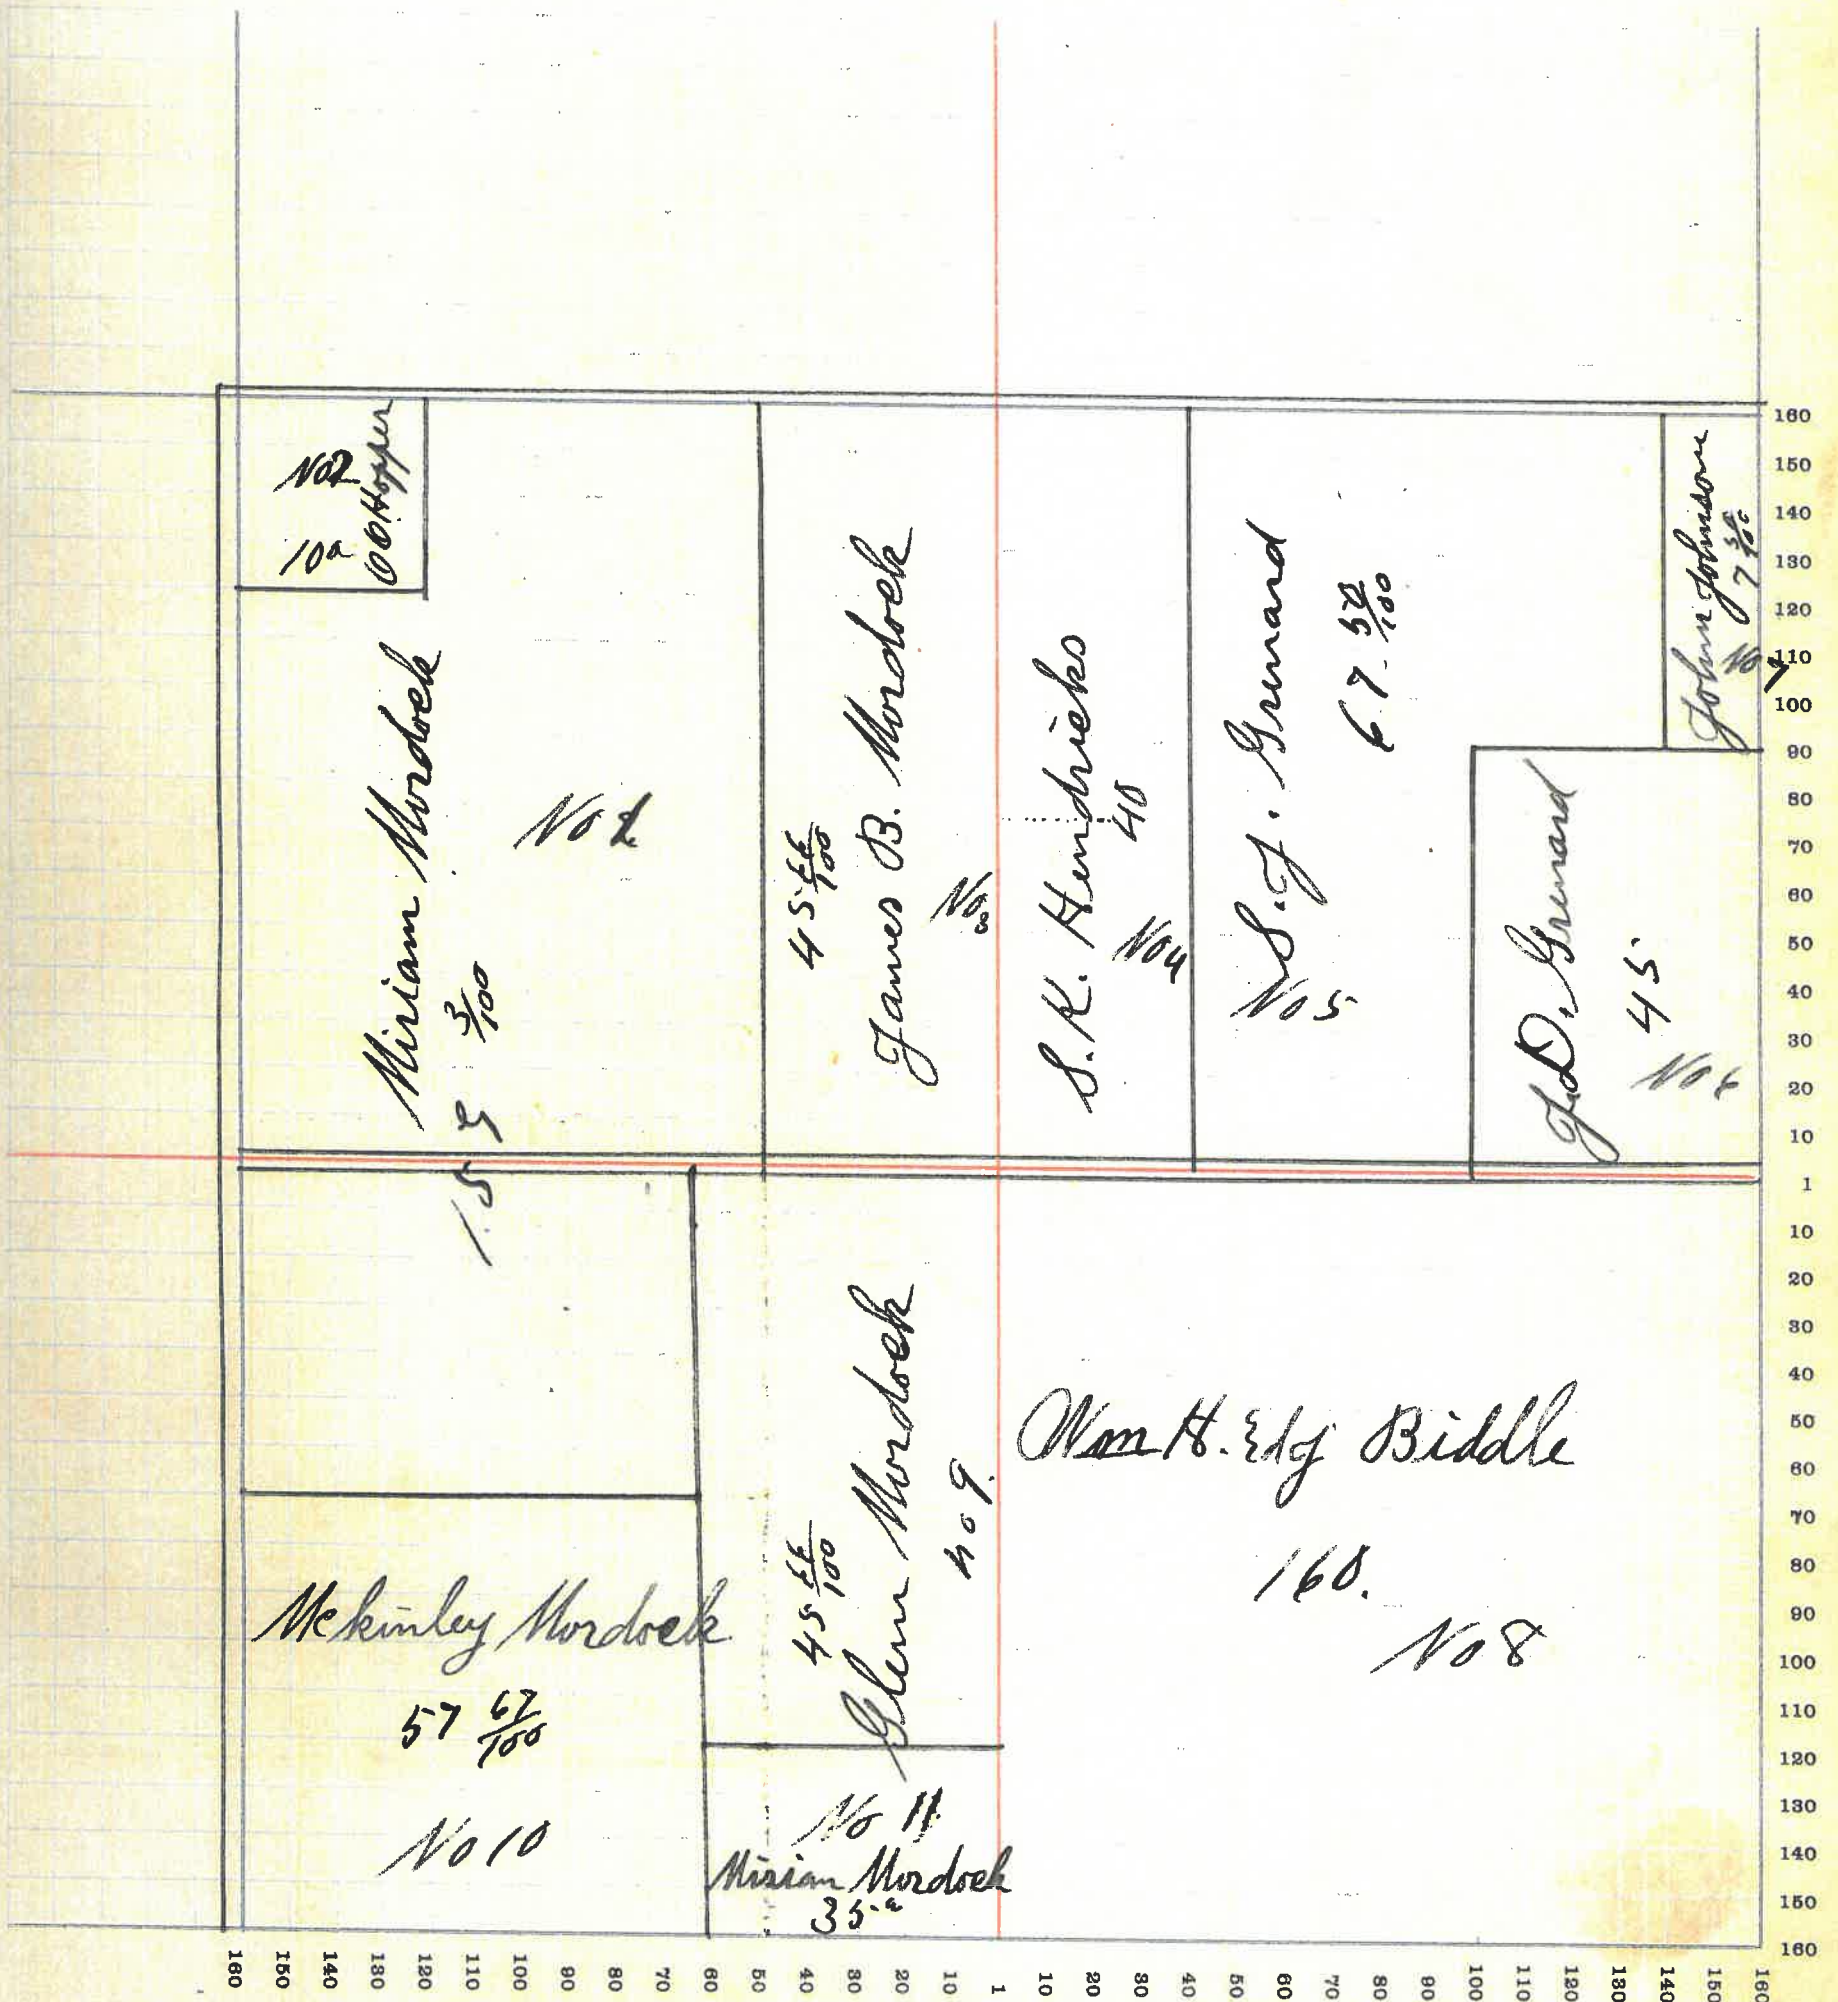 No2
10a
OO Hopper
Miriam Mordock
159 3/100
No 1
45 66/100
James B. Mordock
No 3
S.K. Hendricks
40
No 4
S. J. Grenard
67-50/100
No 5
John Johnson
7 50/100
No 7
J. D. Grenard
45
No 6
Mckinley Mordock
57 67/100
No 10
45 66/100
Glenn Mordock
no 9.
No 11
Mirian Mordock
35 a
Wm H. Edg Biddle
160.
No 8
160
150
140
130
120
110
100
90
80
70
60
50
40
30
20
10
1
10
20
30
40
50
60
70
80
90
100
110
120
130
140
150
160
160
150
140
130
120
110
100
90
80
70
60
50
40
30
20
10
1
10
20
30
40
50
60
70
80
90
100
110
120
130
140
150
160